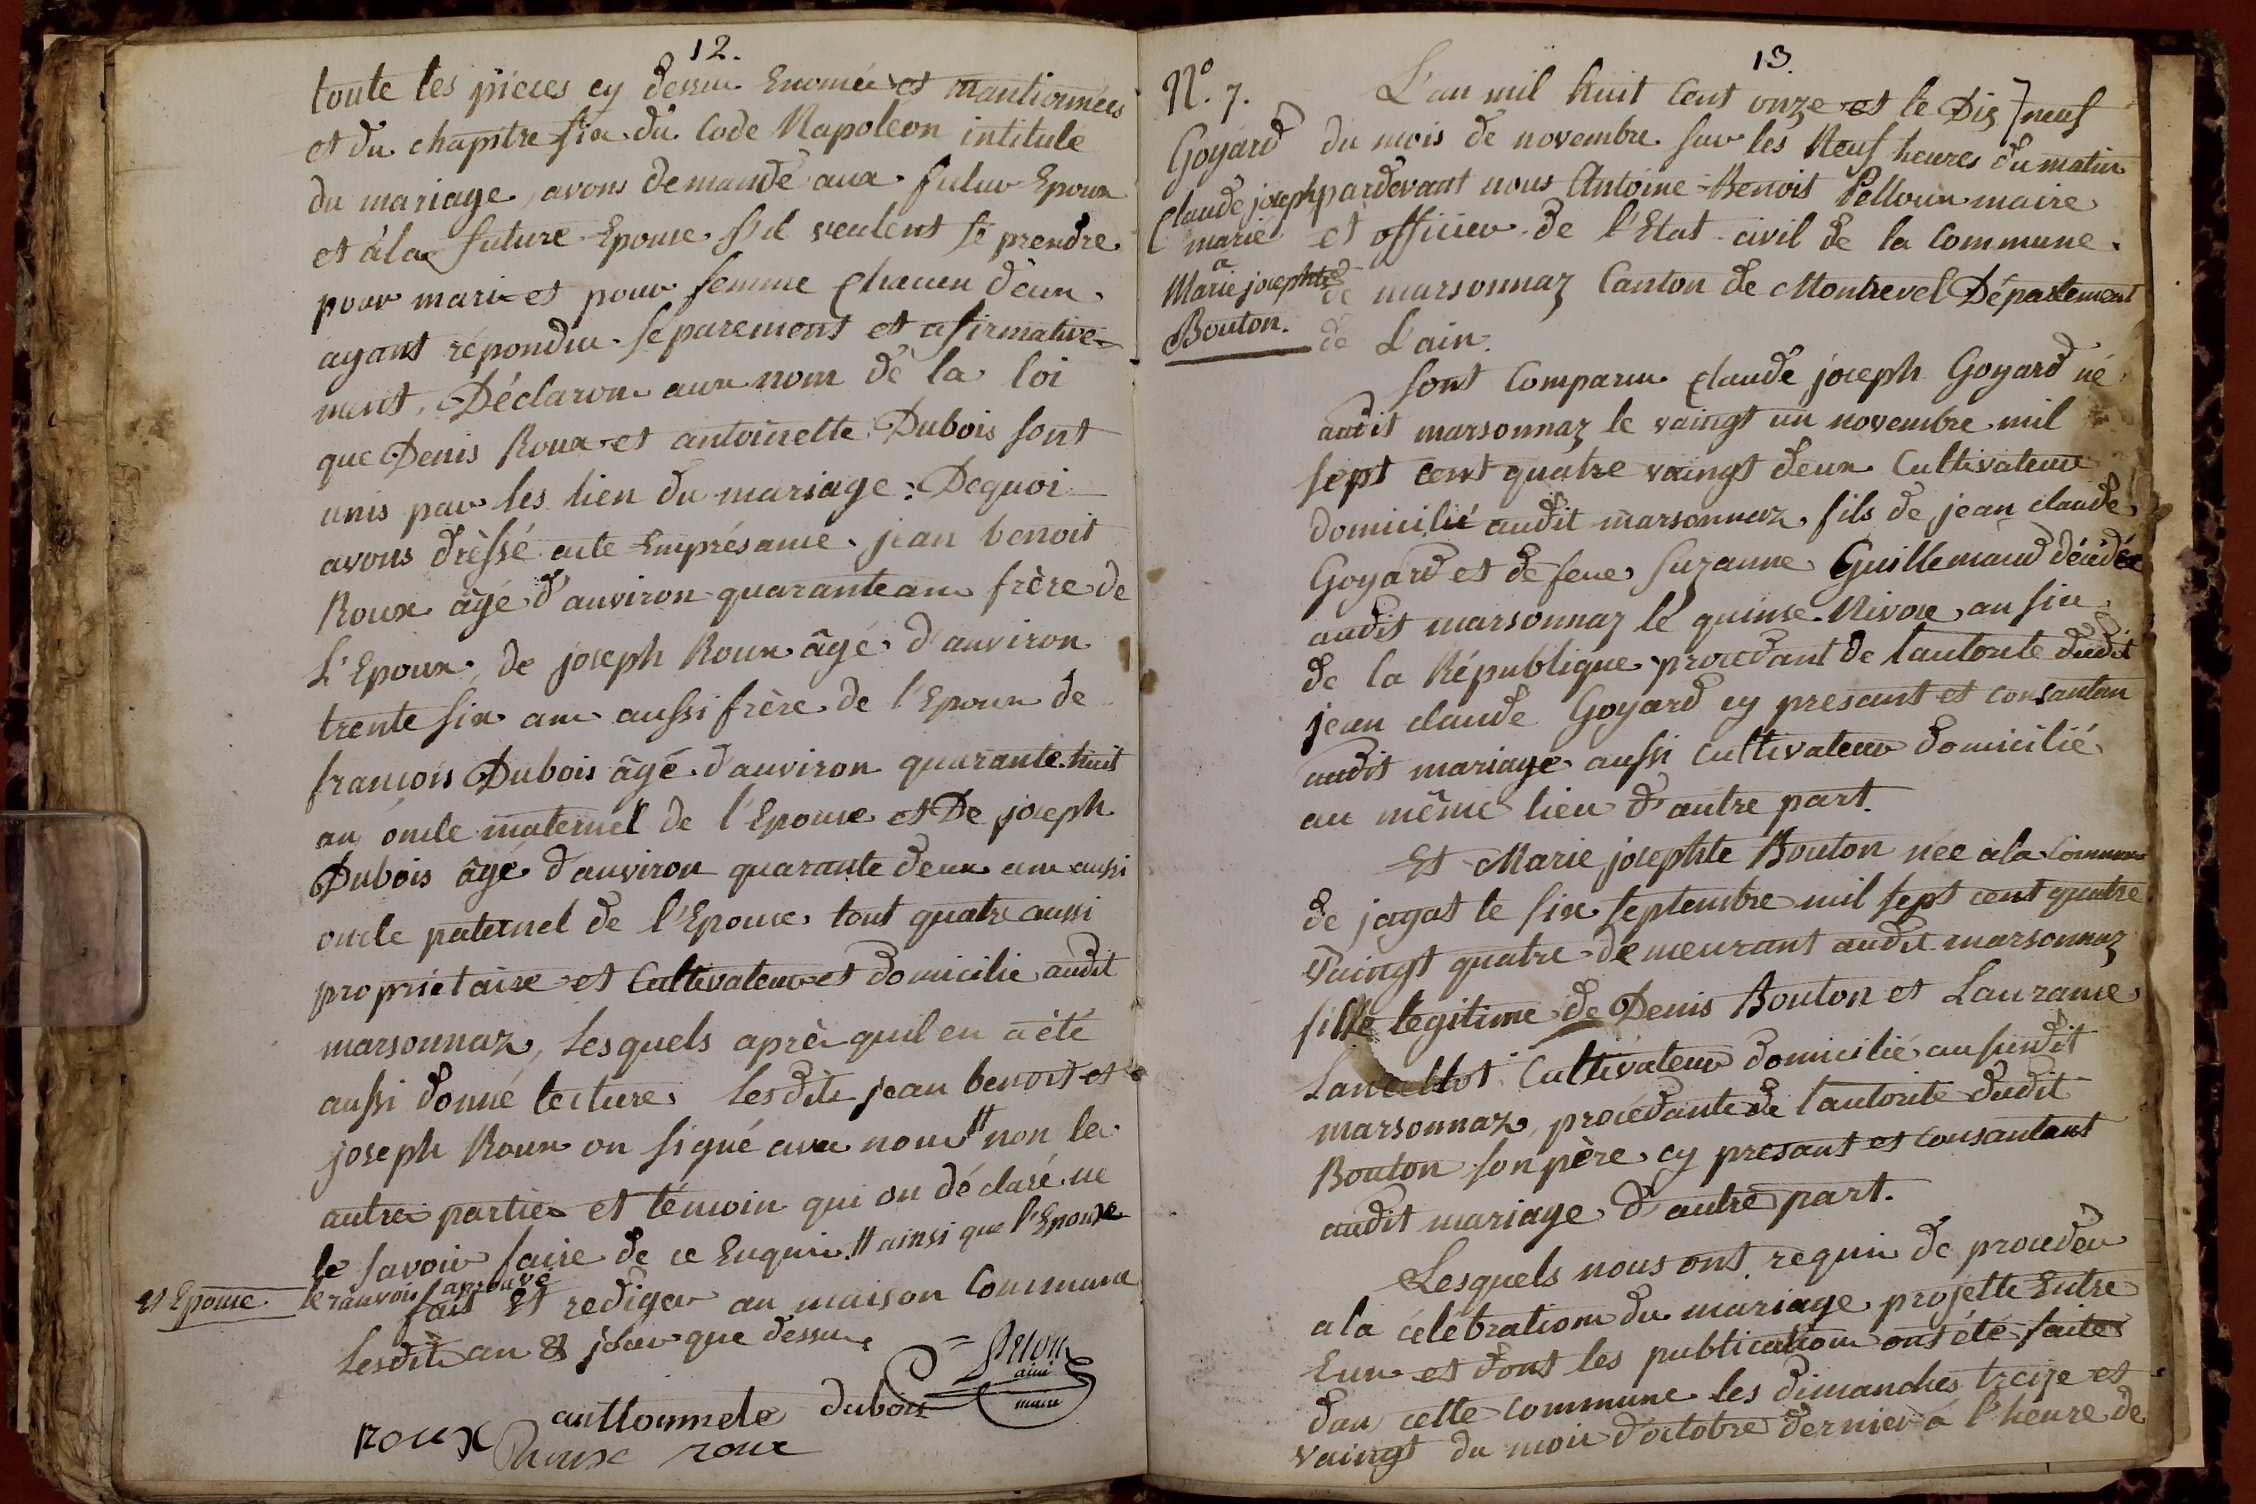 12.
toute les pièces cy dessu Enomée et mantionnées
et du chapitre six du Code Napoléon intitulé
du mariage, avons demandé aux futur Epoux
et à la future Epouse s'il veulent se prendre
pour mari et pour femme chacun d'eux
ayant répondu séparement et afirmative-
ment, Déclarons aux nom de la loi
que Denis Roux et antoinette Dubois sont
unis par les lien du mariage: Dequoi
avons drèssé acte Emprésance jean benoit
Roux âgé d'auviron quarante ans frère de
L'Epoux, de joseph Roux âgé d'auviron
trente six ans aussi frère de l'Epoux de
françois Dubois âgé d'auviron quarante huit
an oncle maternel de l'Epouse et De joseph
Dubois âgé d'auviron quarante deux ans aussi
oncle paternel de l'Epouse tout quatre aussi
propriétaire et Cultivateur et domicilié audit
marsonnaz, Lesquels après quil en a été
aussi donné lecture Lesdits jean benoit et
joseph Roux on signé avec nous # non les
autres parties et témoin qui on déclaré ne
le savoir faire de ce Enquis. # ainsi que l'Epouse
et Epouse. le ranvoit aprouvé
fait Et rediger au maison Commune
Lesdits an & jour que dessus
anttoinnete dubois
maire
roux
roux
13.
N.° 7.
Goyard
Claude joseph
marié
a
Marie josephte
Bouton.
L'an mil huit Cent onze et le Dix neuf
du mois de novembre sur les Neuf heures du matin
pardevant nous Antoine-Benoit Pelloux maire
et officier de l'Etat civil de la Commune
de marsonnaz Canton de Montrevel Département
de L'ain.
Sont Comparu Claude joseph Goyard né
audit marsonnaz le vaingt un novembre mil
sept cent quatre vaingt deux Cultivateur
domicilié audit marsonnaz, fils de jean claude
Goyard et de feue Suzanne Guillemaud décédée
audit marsonnaz le quinse Nivose an six
de la République procedant de l'autorité dudit
jean claude Goyard cy présant et consantan
audit mariage aussi Cultivateur domicilié
au même lieu d'autre part.
Et Marie josephte Bouton née a la Commune
de jayat le six septembre mil sept cent quatre
vaingt quatre demeurant audit marsonnaz
fille légitime de Denis Bouton et Lauranse
Lancellot Cultivateur domicilié au susdit
marsonnaz, procédante de l'autorité dudit
Bouton son père cy présant et consantant
audit mariage d'autre part.
Lesquels nous ont requis de procéder
a la célébration du mariage projetté Entre
Eux et dont les publication ont été faites
dan cette commune les dimanches treize et
vaingt du mois d'octobre dernier à l'heure de